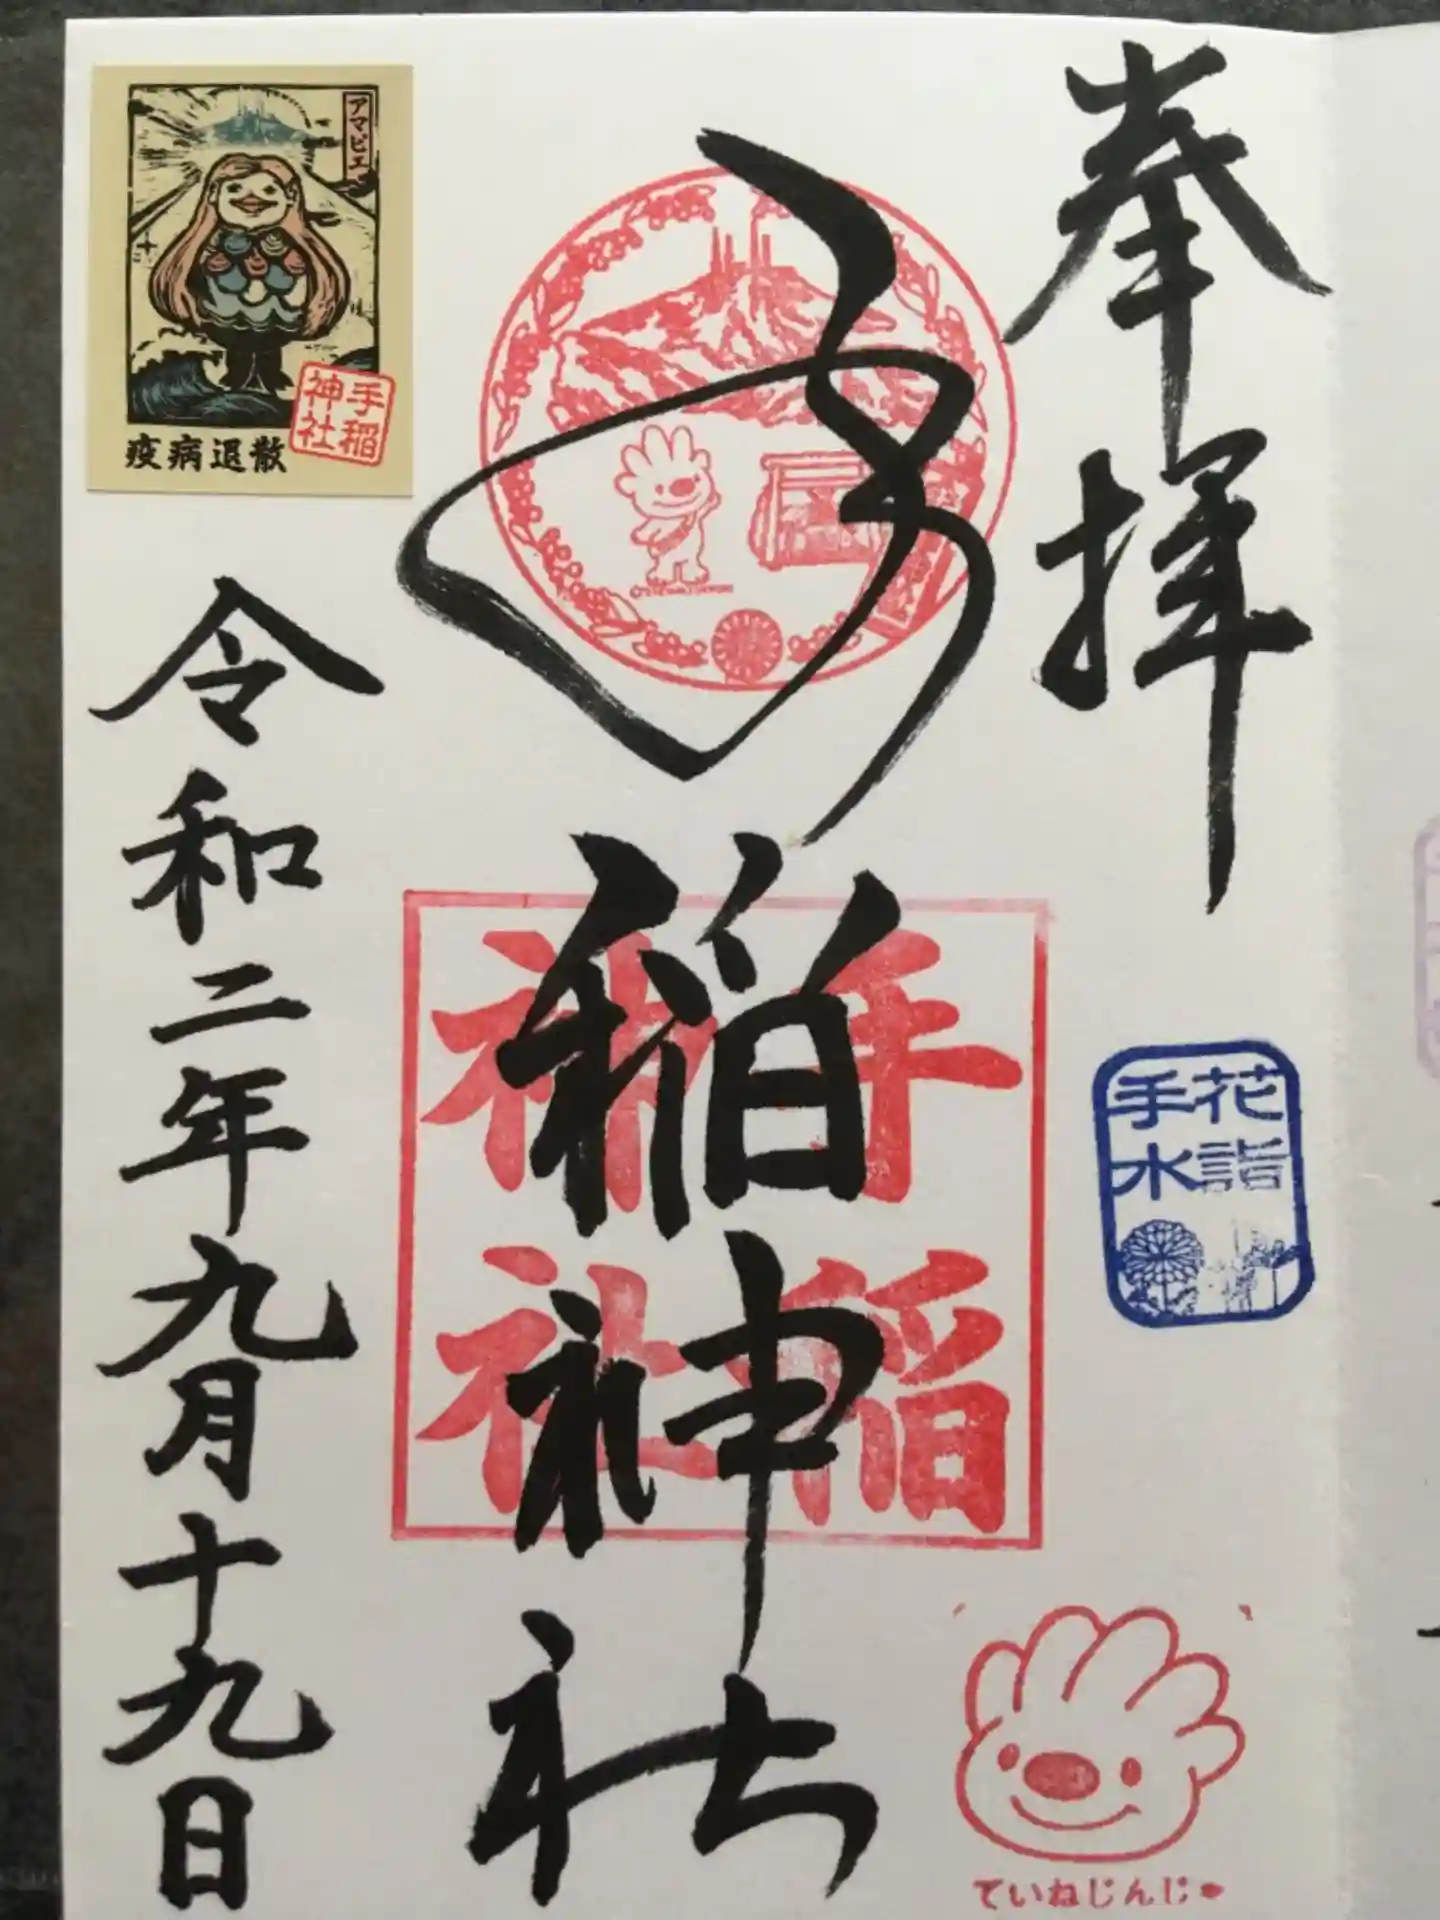 奉拝
花詣
手水
手稲神社
手稲
神社
ていねじんじ
アマビエ
疫病退散
手稲
神社
令和二年九月十九日